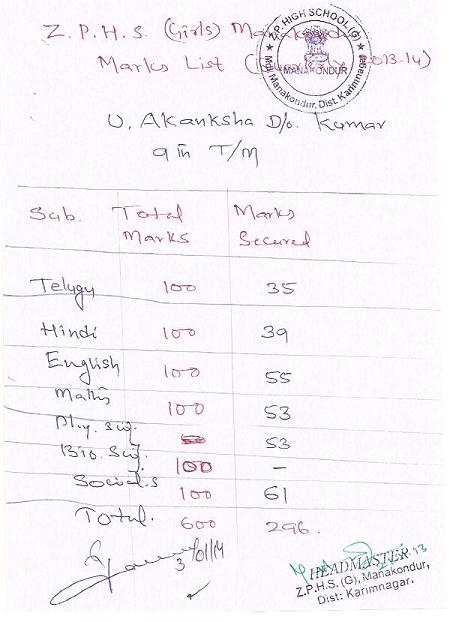 Z.P.H.S. (Girls) Manakondur
Marks List (Quarterly 2013-14)
Z.P. HIGH SCHOOL (G)
MANAKONDUR
Manakondur, Dist: Karimnagar
U. Akanksha D/o. Kumar
9th T/M
Sub. Total Marks Marks Secured
Telugu 100 35
Hindi 100 39
English 100 55
Maths 100 53
Phy. Sci. 53
Bio. Sci. 100 -
Social.s 100 61
Total. 600 296.
3/01/14
HEADMASTER
Z.P.H.S. (G), Manakondur,
Dist: Karimnagar.